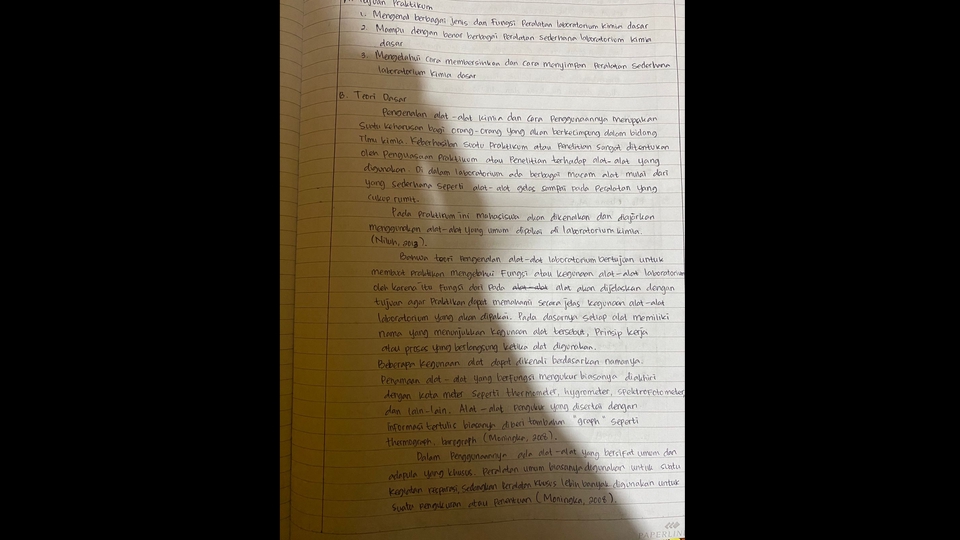 A. Tujuan Praktikum
1. Mengenal berbagai jenis dan Fungsi Peralatan laboratorium kimia dasar
2. Mampu dengan benar berbagai Peralatan Sederhana laboratorium kimia
dasar
3. Mengetahui cara membersihkan dan cara menyimpan Peralatan Sederhana
laboratorium kimia dasar
B. Teori Dasar
Pengenalan alat-alat kimia dan cara Penggunaannya merupakan
Suatu keharusan bagi orang-orang yang akan berkecimpong dalam bidang
Ilmu kimia. Keberhasilan suatu Praktikum atau Penelitian sangat ditentukan
oleh Penguasaan Praktikum atau Penelitian terhadap alat-alat yang
digunakan. Di dalam laboratorium ada berbagai macam alat mulai dari
yang sederhana seperti alat-alat gelas sampai pada Peralatan yang
cukup rumit.
Pada Praktikum ini mahasiswa akan dikenalkan dan diajarkan
menggunakan alat-alat yang umum dipakai di laboratorium kimia.
(Niluh, 2013).
Bahwa teori Pengenalan alat-alat laboratorium bertujuan untuk
membuat Praktikan mengetahui Fungsi atau kegunaan alat-alat laboratorium
oleh karena itu fungsi dari Pada alat-alat alat akan dijelaskan dengan
tujuan agar Praktikan dapat memahami secara jelas kegunaan alat-alat
laboratorium yang akan dipakai. Pada dasarnya setiap alat memiliki
nama yang menunjukkan kegunaan alat tersebut, Prinsip kerja
atau proses yang berlangsung ketika alat digunakan.
Beberapa kegunaan alat dapat dikenali berdasarkan namanya.
Penamaan alat-alat yang berfungsi mengukur biasanya diakhiri
dengan kata meter seperti thermometer, hygrometer, spektrofotometer
dan lain-lain. Alat-alat Pengukur yang disertai dengan
informasi tertulis biasanya diberi tambahan "graph" seperti
thermograph, barograph (Moningka, 2008).
Dalam Penggunaannya ada alat-alat yang bersifat umum dan
adapula yang khusus. Peralatan umum biasanya digunakan untuk suatu
kegiatan reparasi, sedangkan Peralatan khusus lebih banyak digunakan untuk
suatu pengukuran atau Penentuan (Moningka, 2008).
PAPERLIN